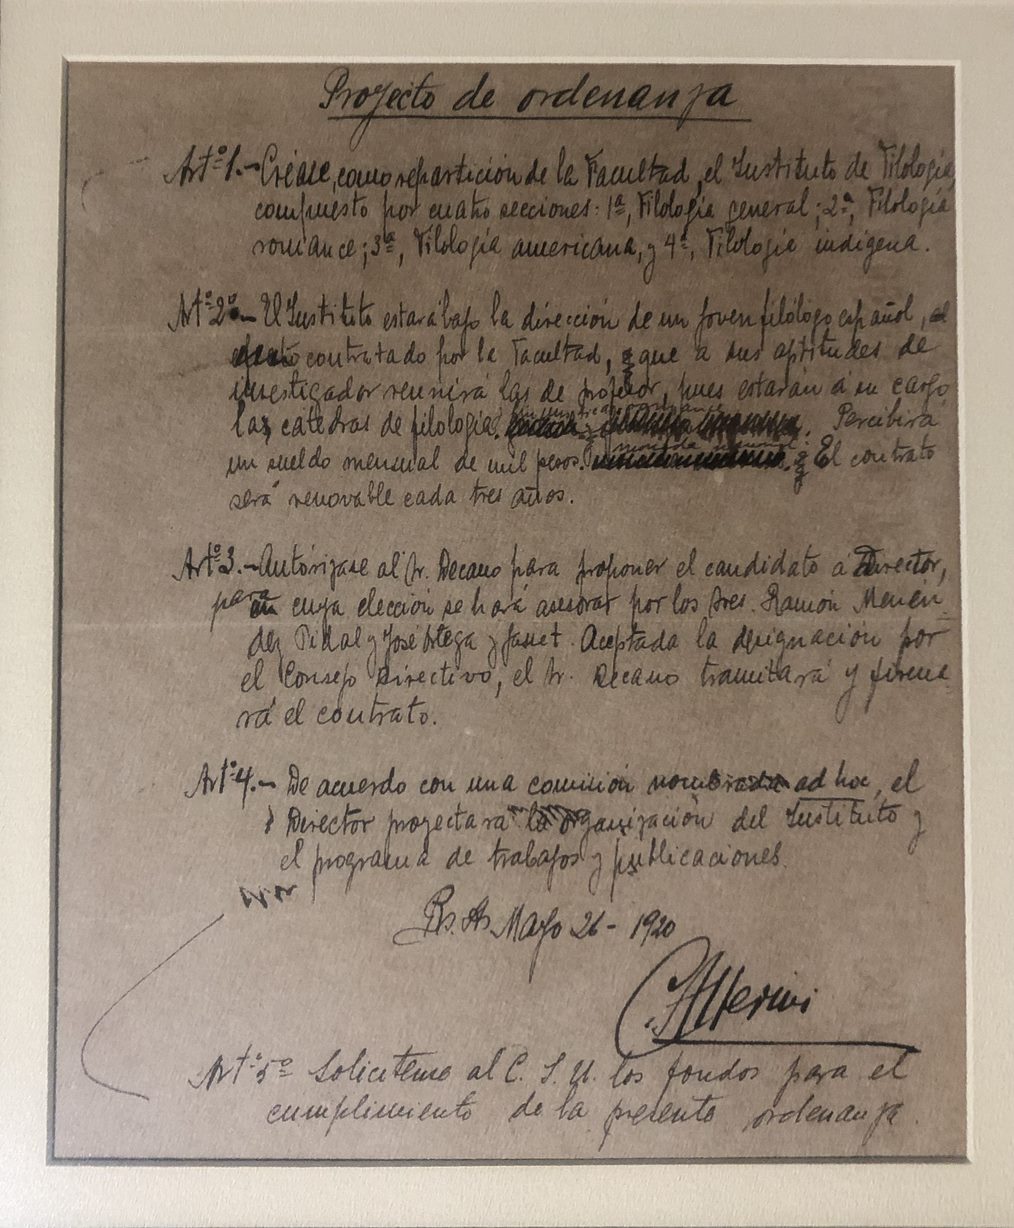 Proyecto de ordenanza
Artº 1.- Créase, como repartición de la Facultad, el Instituto de Filología,
compuesto por cuatro secciones: 1ª, Filología general; 2ª, Filología
romance; 3ª, Filología americana, y 4ª, Filología indígena.
Artº 2º.- El Instituto estará bajo la dirección de un joven filólogo español,
contratado por la Facultad, que a sus aptitudes de
investigador reunirá las de profesor, pues estarán á su cargo
las cátedras de filología. Percibirá
un sueldo mensual de mil pesos moneda nacional. El contrato
será renovable cada tres años.
Artº 3.- Autorízase al Sr. Decano para proponer el candidato á Director,
para cuya elección se hará asesorar por los Sres. Ramón Menen-
dez Pidal y José Ortega y Gasset. Aceptada la designación por
el Consejo Directivo, el Sr. Decano tramitará y firma-
rá el contrato.
Artº 4.- De acuerdo con una comisión nombrada ad hoc, el
Director proyectará la organización del Instituto y
el programa de trabajos y publicaciones.
Bs. As. Mayo 26 - 1920
C. Alberini
Artº 5º Solicítense al C. S. U. los fondos para el
cumplimiento de la presente ordenanza.